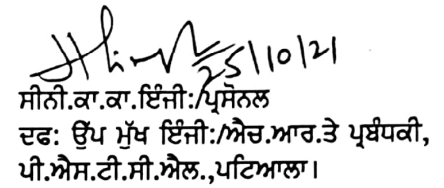 25/10/21
ਸੀਨੀ.ਕਾ.ਕਾ.ਇੰਜੀ:/ਪ੍ਰਸੋਨਲ
ਦਫ: ਉੱਪ ਮੁੱਖ ਇੰਜੀ:/ਐਚ.ਆਰ.ਤੇ ਪ੍ਰਬੰਧਕੀ,
ਪੀ.ਐਸ.ਟੀ.ਸੀ.ਐਲ.,ਪਟਿਆਲਾ।